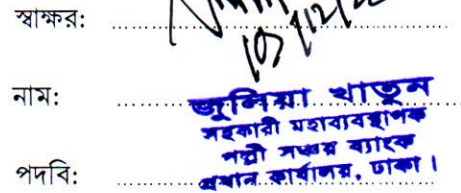 স্বাক্ষর:
নাম:
জুলিয়া খাতুন
সহকারী মহাব্যবস্থাপক
পল্লী সঞ্চয় ব্যাংক
পদবি:
প্রধান কার্যালয়, ঢাকা।